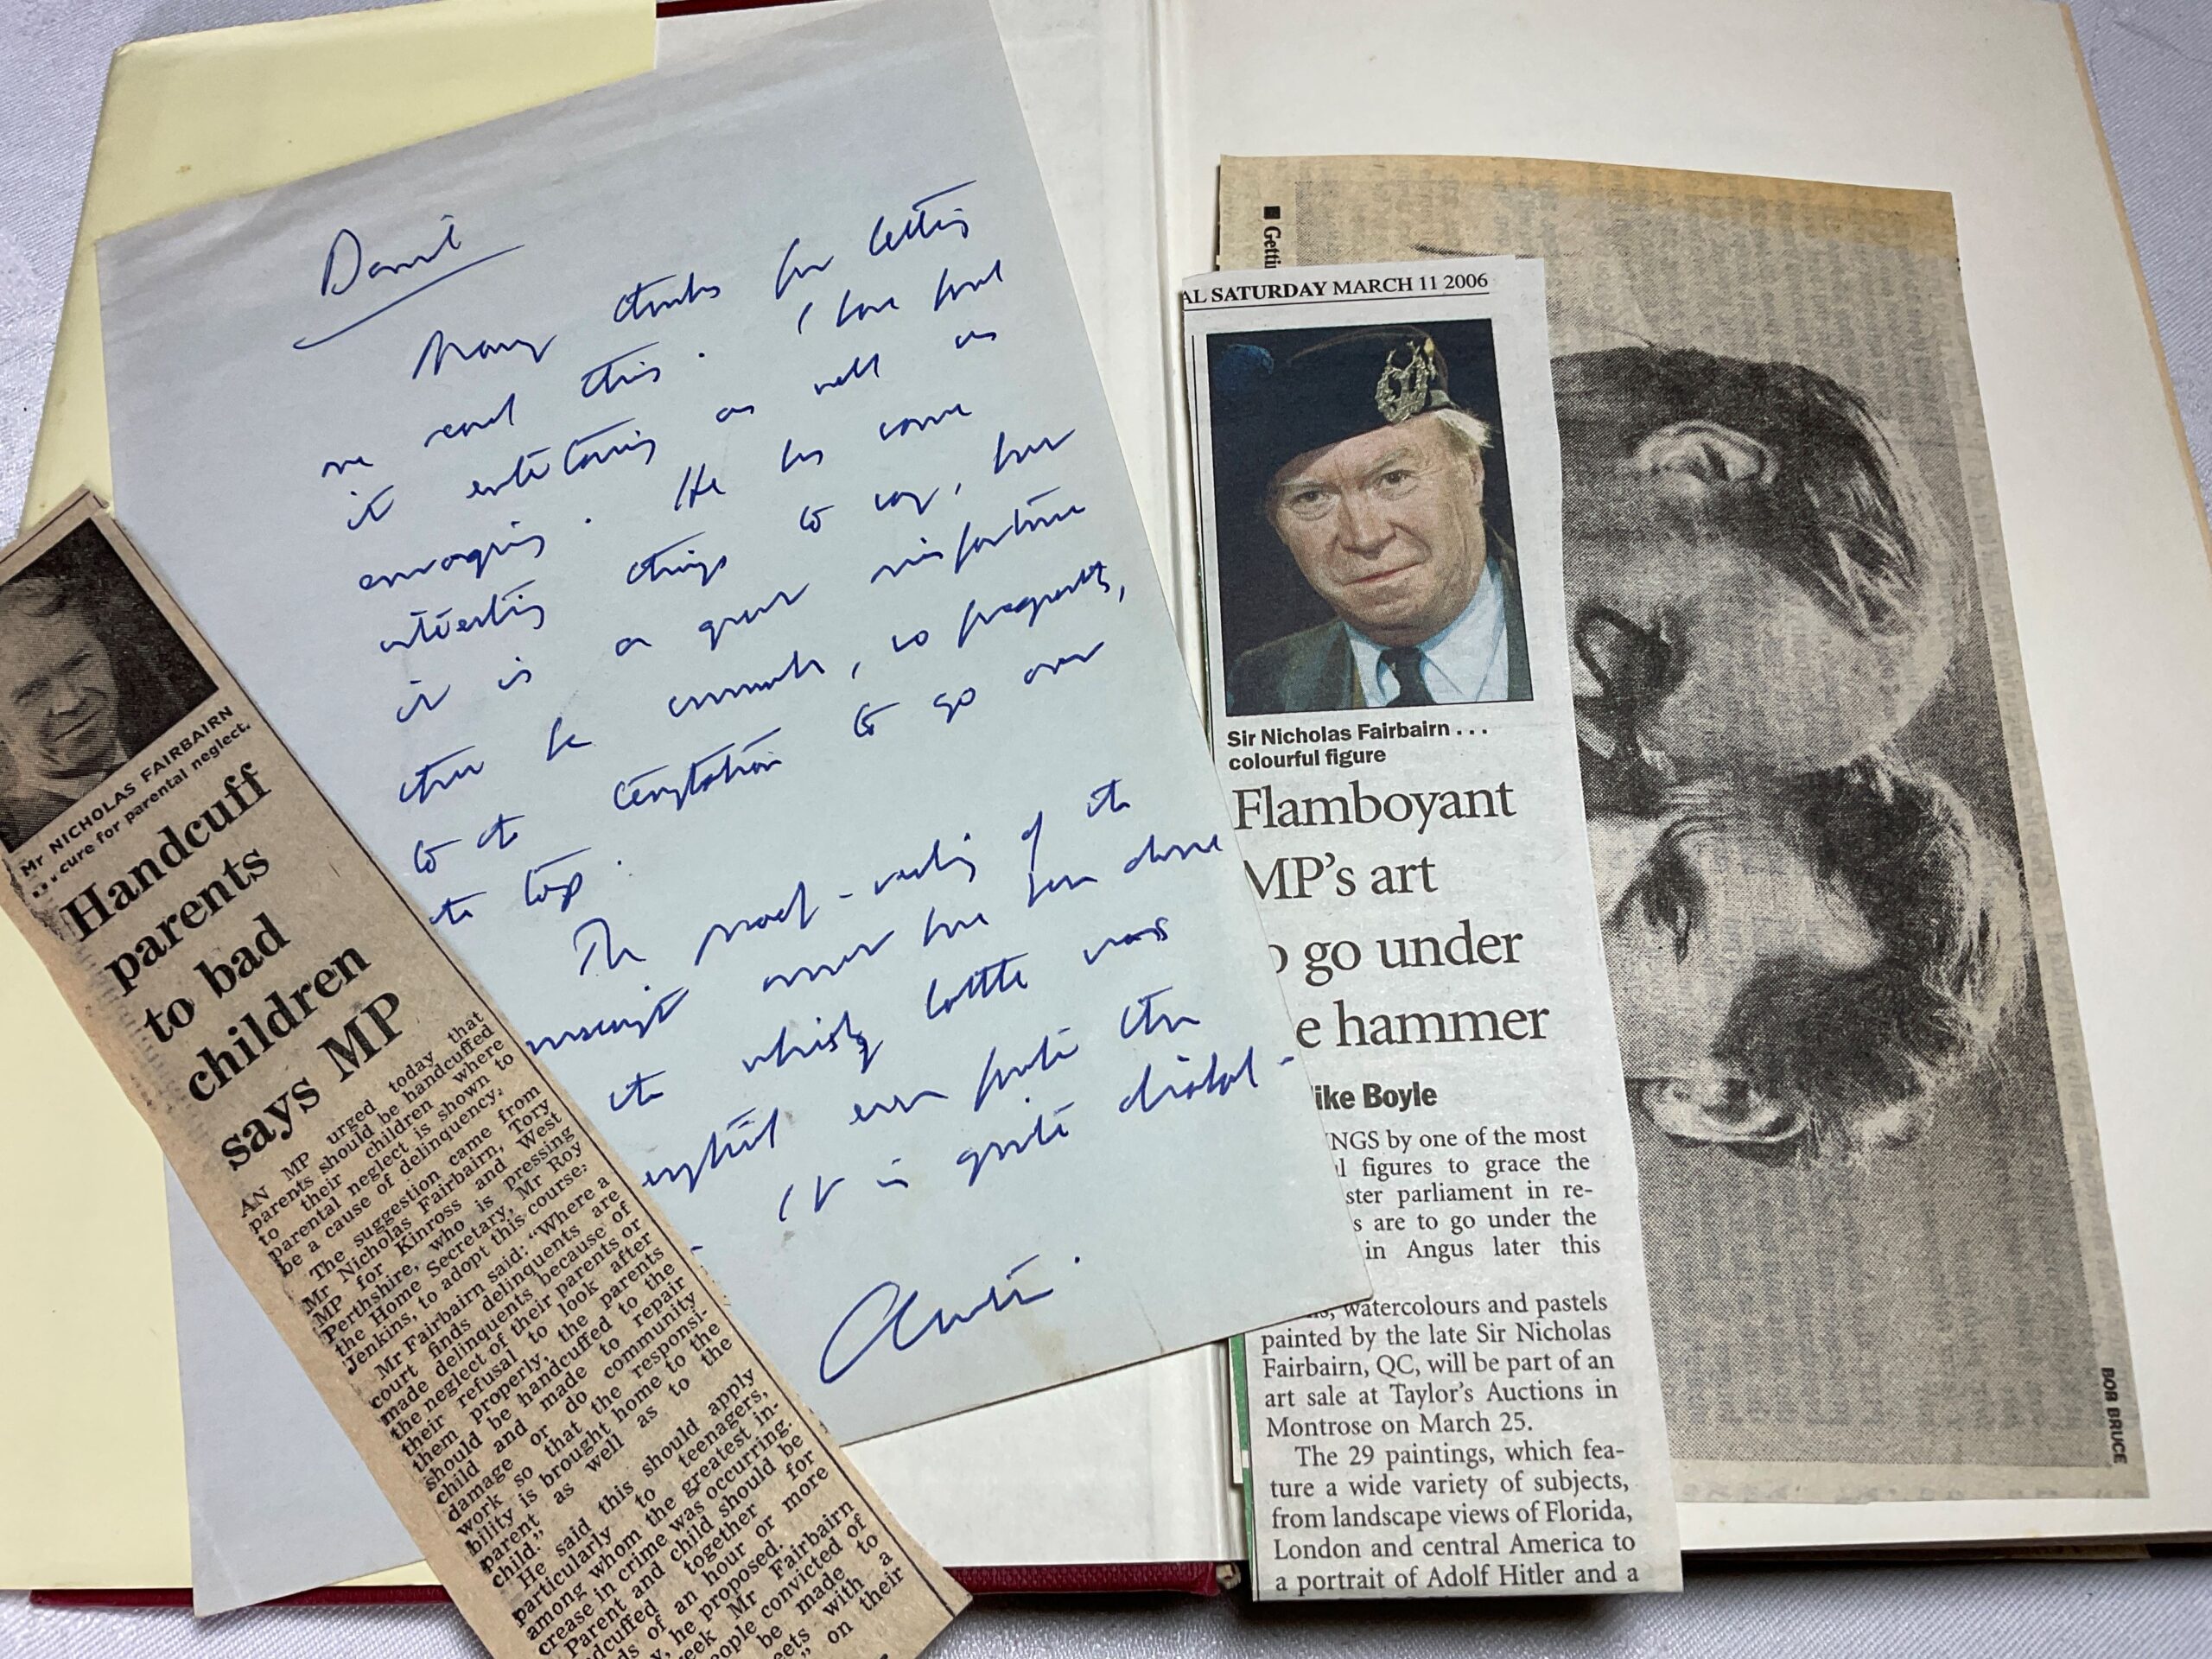 Daniel
Many thanks for letting
me read this. I have found
it entertaining as well as
enraging. He has some
interesting things to say, but
it is a great misfortune
that he succumbs, so frequently,
to the temptation to go over
the top.
The proof-reading of the
manuscript must have been done
the whisky bottle was
even further than
It is quite
Mr NICHOLAS FAIRBAIRN
cure for parental neglect.
Handcuff
parents
to bad
children
says MP
AN MP urged today that
parents should be handcuffed
to their children where
parental neglect is shown to
be a cause of delinquency.
The suggestion came from
Mr Nicholas Fairbairn, Tory
MP for Kinross and West
Perthshire, who is pressing
the Home Secretary, Mr Roy
Jenkins, to adopt this course.
Mr Fairbairn said: "Where a
court finds delinquents are
made delinquents because of
the neglect of their parents or
their refusal to look after
them properly, the parents
should be handcuffed to the
child and made to repair
damage or do community
work so that the responsi-
bility is brought home to the
parent as well as to the
child."
He said this should apply
particularly to teenagers,
among whom the greatest in-
crease in crime was occurring.
Parent and child should be
ndcuffed together for
ds of an hour or more
y, he proposed.
eek Mr Fairbairn
ople convicted of
be made to
eets with a
" on their
AL SATURDAY MARCH 11 2006
Sir Nicholas Fairbairn . . .
colourful figure
Flamboyant
MP's art
o go under
e hammer
ike Boyle
NGS by one of the most
l figures to grace the
ster parliament in re-
s are to go under the
in Angus later this
s, watercolours and pastels
painted by the late Sir Nicholas
Fairbairn, QC, will be part of an
art sale at Taylor's Auctions in
Montrose on March 25.
The 29 paintings, which fea-
ture a wide variety of subjects,
from landscape views of Florida,
London and central America to
a portrait of Adolf Hitler and a
■ Getti
BOB BRUCE